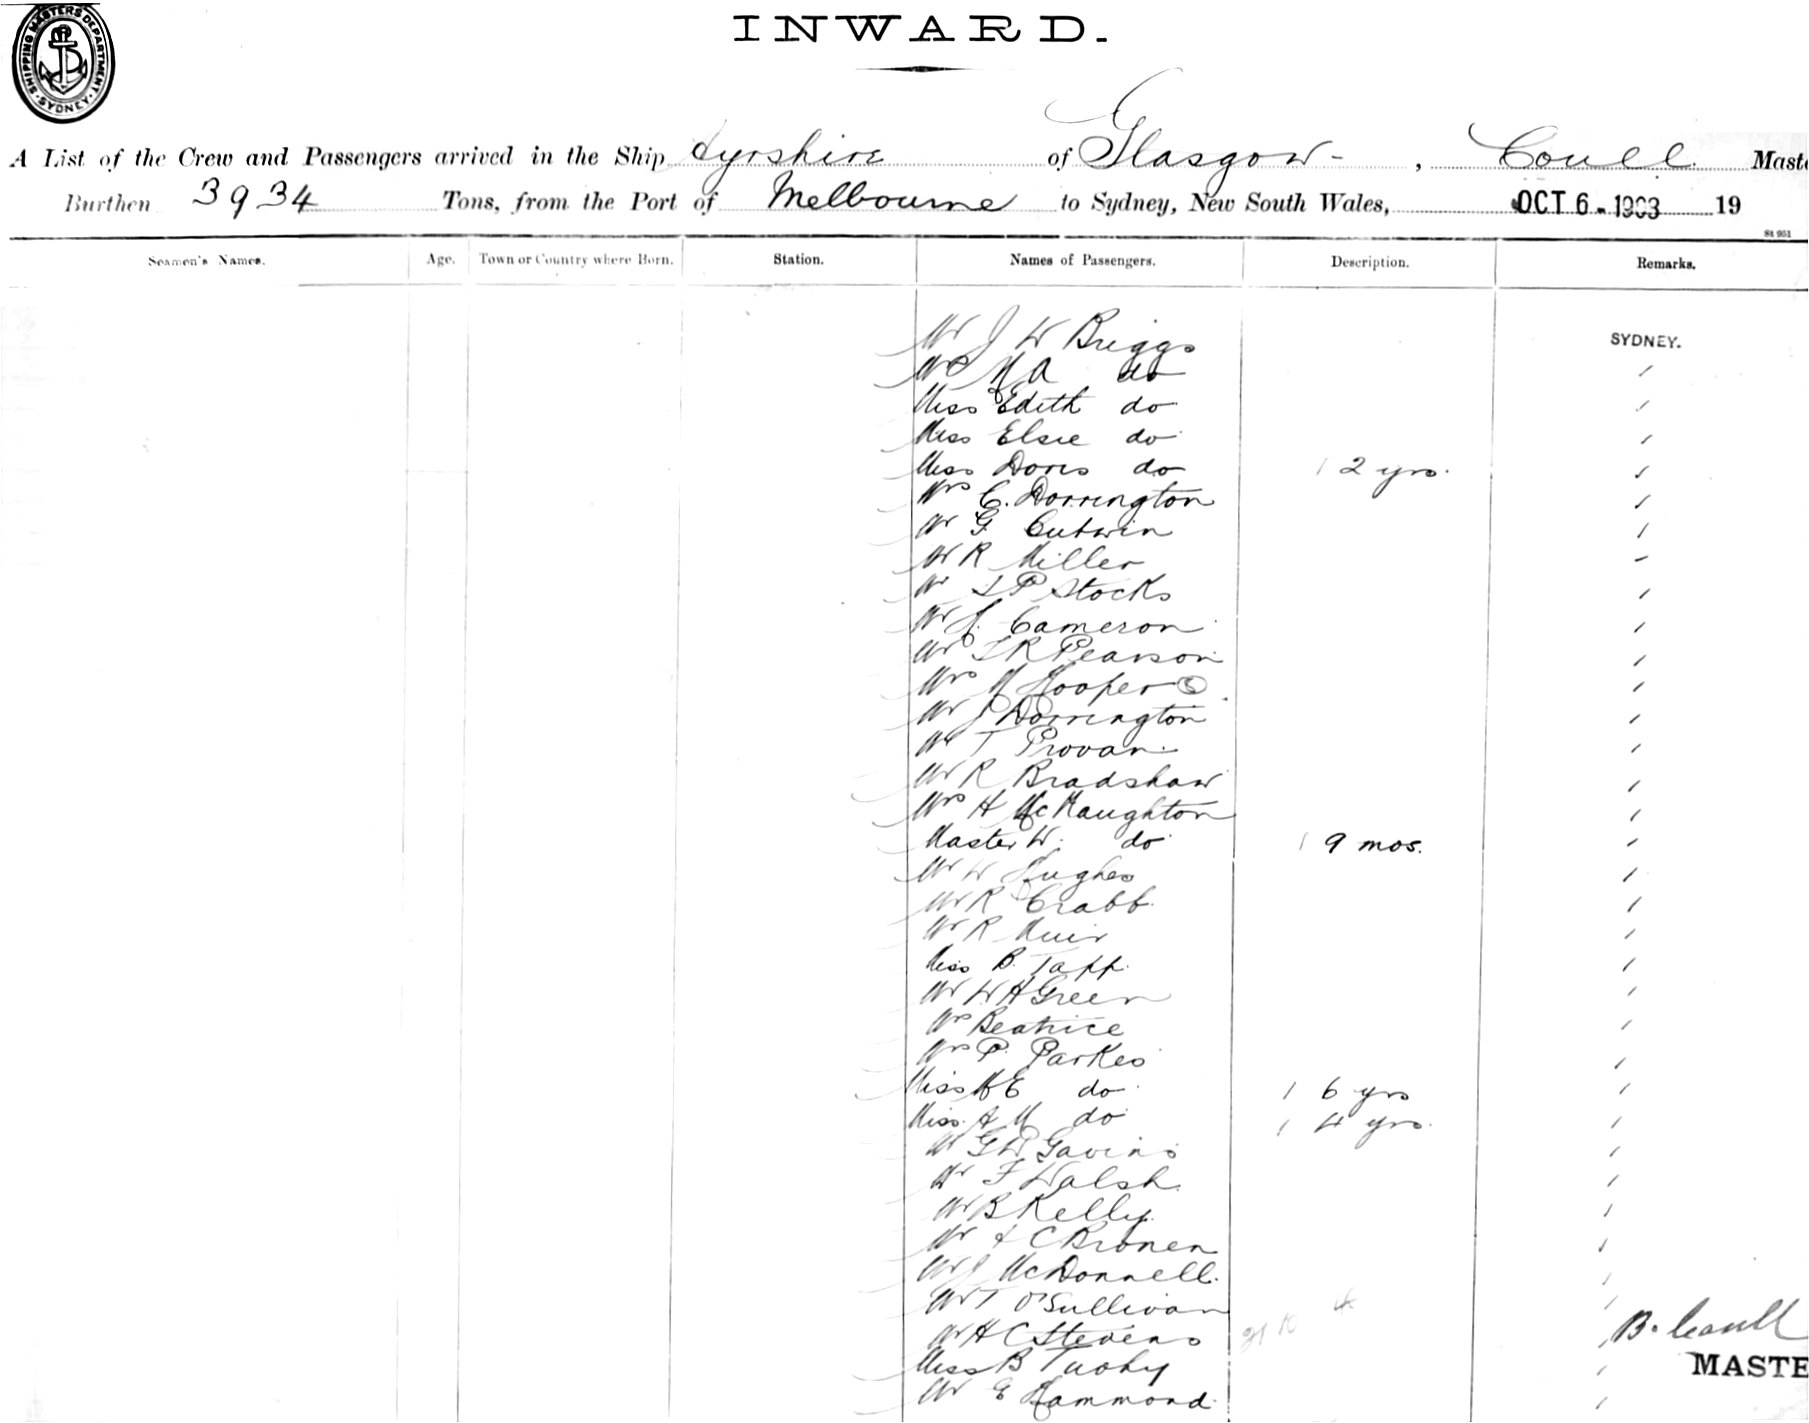 SHIPPING MASTERS DEPARTMENT
SYDNEY
INWARD.
A List of the Crew and Passengers arrived in the Ship Ayrshire of Glasgow, Coull Maste
Burthen 3934 Tons, from the Port of Melbourne to Sydney, New South Wales, OCT 6 - 1903 19
St 951
Seamen's Names. Age. Town or Country where Born. Station. Names of Passengers. Description. Remarks.
Mr J W Briggs SYDNEY.
M A do
Miss Edith do
Miss Elsie do
Miss Doris do 1 2 yrs.
Mrs C. Dorrington
Mr G Cutwin
Mr R Miller
Mr L P Stocks
Mr J. Cameron
Mr L R Pearson
Mrs M Hooper
Mr J Dorrington
Mr T Provan
Mr R Bradshaw
Mrs H McNaughton
Master W. do 1 9 mos.
Mr W Hughes
Mr R Crabb
Mr R Muir
Miss B. Tapp.
Mr W H Green
Mrs Beatrice
Mrs P. Parkes
Miss E do 1 6 yrs
Miss. A M do 1 4 yrs.
Mr G W Gavins
Mr F Walsh
Mr B Kelly
Mr C Bronen
Mr J McDonnell.
Mr T O'Sullivan
Mr H C Stevens B. Coull
Miss B Tuohy MASTE
Mr E Hammond